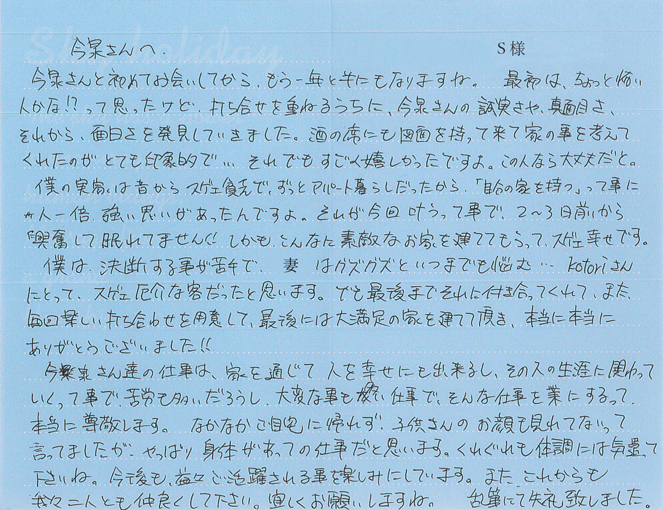 S様
今泉さんへ.
今泉さんと初めてお会いしてから、もう一年と半にもなりますね。 最初は、ちょっと怖い
人かな!?って思ったけど、打ち合せを重ねるうちに、今泉さんの誠実さや、真面目さ、
それから、面白さを発見していきました。酒の席にも図面を持って来て家の事を考えて
くれたのがとても印象的で… それでもすごく嬉しかったですよ。この人なら大丈夫だと。
僕の実家は昔からスゲェ貧乏で、ずっとアパート暮らしだったから、「自分の家を持つ」って事に
人一倍 強い思いがあったんですよ。それが今回叶うって事で、2〜3日前から
興奮して眠れてません!! しかも、こんなに素敵なお家を建ててもらって、スゲェ幸せです。
僕は、決断する事が苦手で、妻はグズグズといつまでも悩む… kotoriさん
にとって、スゲェ厄介な客だったと思います。でも最後までそれに付き合ってくれて、また、
毎回楽しい打ち合わせを用意して、最後には大満足の家を建てて頂き、本当に本当に
ありがとうございました!!
今泉さん達の仕事は、家を通じて人を幸せにも出来るし、その人の生涯に関わって
いくって事で、苦労も多いだろうし、大変な事も多い仕事で、そんな仕事を業にするって、
本当に尊敬します。 なかなかご自宅に帰れず、子供さんのお顔も見れてないって
言ってましたが、やっぱり身体があっての仕事だと思います。くれぐれも体調には気遣って
下さいね。今後も、益々ご活躍される事を楽しみにしています。また、これからも
我々二人とも仲良くして下さい。宜しくお願いしますね。 乱筆にて失礼致しました。